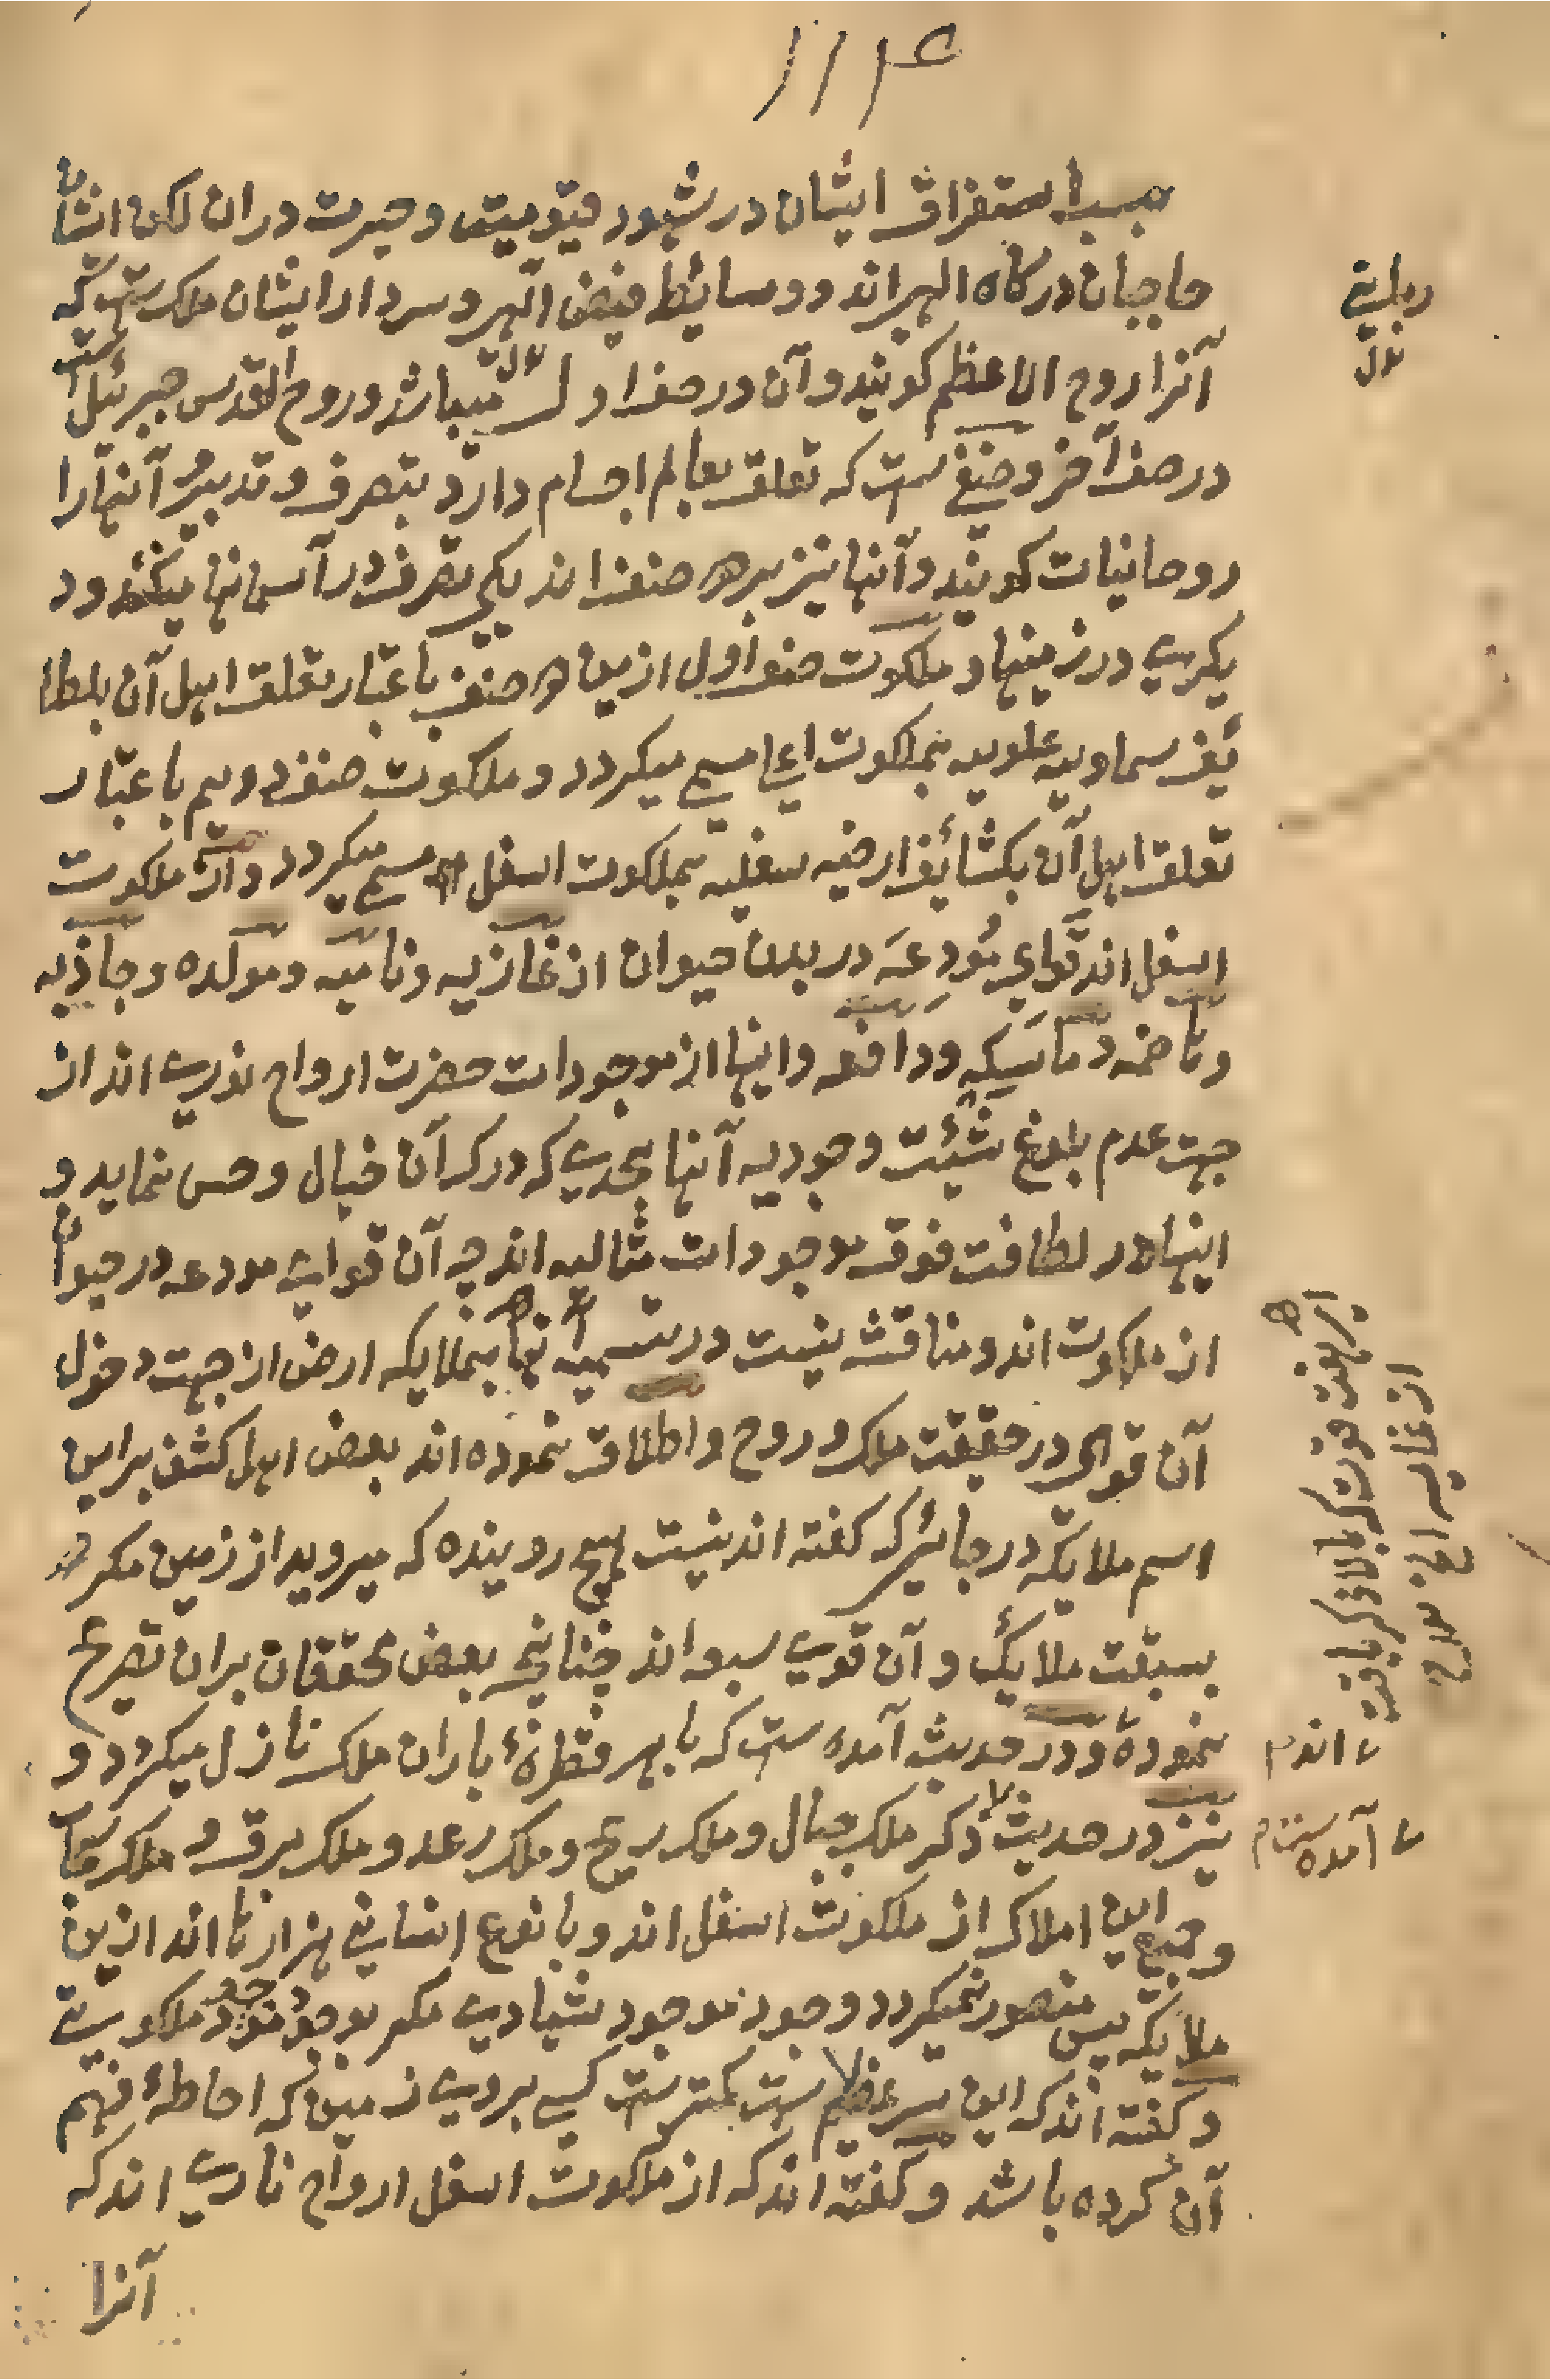 ۱۱۴
بسبب استغراق ایشان در شهود قیومیت و حیرت در ان لکن ایشان
حاجبان درکاه الهی اند و وسایط فیض الهی و سردار ایشان ملکی ست که
آنرا روح الاعظم کویند و آن در صف اول میباشد و روح القدس جبرئیل است
در صف آخر و صنفی ست که تعلق بعالم اجسام دارد بتصرف و تدبیر آنها را
روحانیات کویند و آنها نیز بر دو صنف اند یکی تصرف در آسمانها میکند و د
یکری در زمینها و ملکوت صنف اول ازین دو صنف باعتبار تعلق اهل آن بلطا
ئف سماویه علویه بملکوت اعلی مسمی میکردد و ملکوت صنف دویم باعتبار
تعلق اهل آن بکثائف ارضیه سفلیه بملکوت اسفل مسمی میکردد و از ملکوت
اسفل اند قوای مُودعَه در بدن حیوان از غاذیه و نامیه و مولده و جاذبه
و هاضمه و ماسکه و دافعه و اینها از موجودات حضرت ارواح نوری اند از
جهت عدم بلوغ شیئیت وجودیه آنها بحدی که درک آن خیال و حس نماید و
اینها در لطافت فوق موجودات مثالیه اند چه آن قوای مودعه در حیوان
از ملکوت اند و مناقشه نیست در تسمیه آنها بملایکه ارض از جهت دخول
آن قوای در حقیقت ملک و روح و اطلاق نموده اند بعض اهل کشف براین
اسم ملایکه در جائیکه کفته اند نیست هیچ روینده که میروید از زمین مکر
بسبقت ملایک و آن قوی سبعه اند چنانچه بعض محققان بران تصریح
نموده و در حدیث آمده ست که با هر قطرهٔ باران ملک نازل میکردد و
نیز در حدیث ذکر ملک جبال و ملک ریح و ملک رعد و ملک برق و ملک سحاب
و جمیع این املاک از ملکوت اسفل اند و با نوع انسانی هزارها اند ازین
ملایکه پس متصور نمیکردد وجود موجود شهادی مکر بوجود ملکوتی
و کفته اند که این سر عظیم ست کمتر ست کسی بر روی زمین که احاطهٔ فهم
آن کرده باشد و کفته اند که از ملکوت اسفل ارواح ناری اند که
آنرا
بدل
این هفت قوت که بالا ذکر یافته
از غاذیه الخ
اند م
آمده ست م